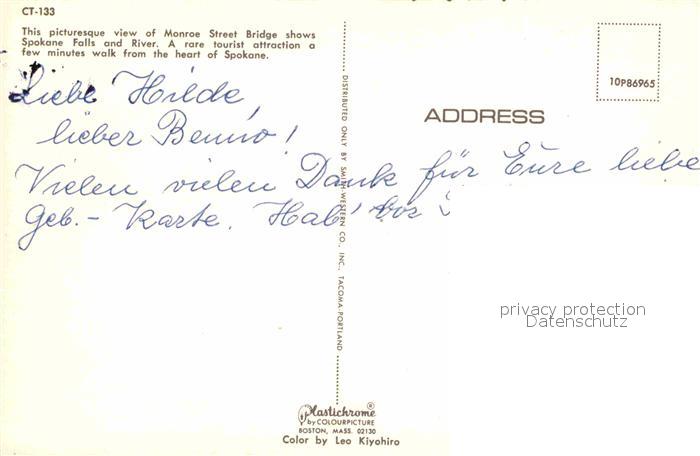 CT-133
This picturesque view of Monroe Street Bridge shows
Spokane Falls and River. A rare tourist attraction a
few minutes walk from the heart of Spokane.
10P86965
ADDRESS
Liebe Hilde,
lieber Benno!
Vielen vielen Dank für Eure liebe
Geb.- Karte. Hab'
DISTRIBUTED ONLY BY SMITH-WESTERN CO., INC., TACOMA-PORTLAND
privacy protection
Datenschutz
Plastichrome®
by COLOURPICTURE
BOSTON, MASS. 02130
Color by Leo Kiyohiro